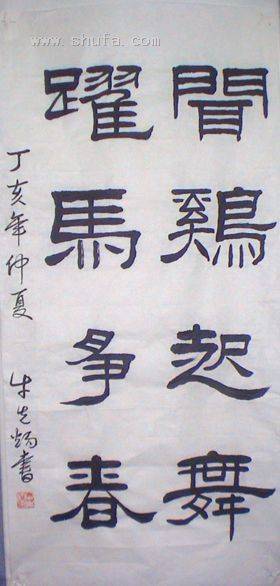 www.shufa.com
聞鷄起舞
躍馬爭春
丁亥年仲夏
牛志炳書